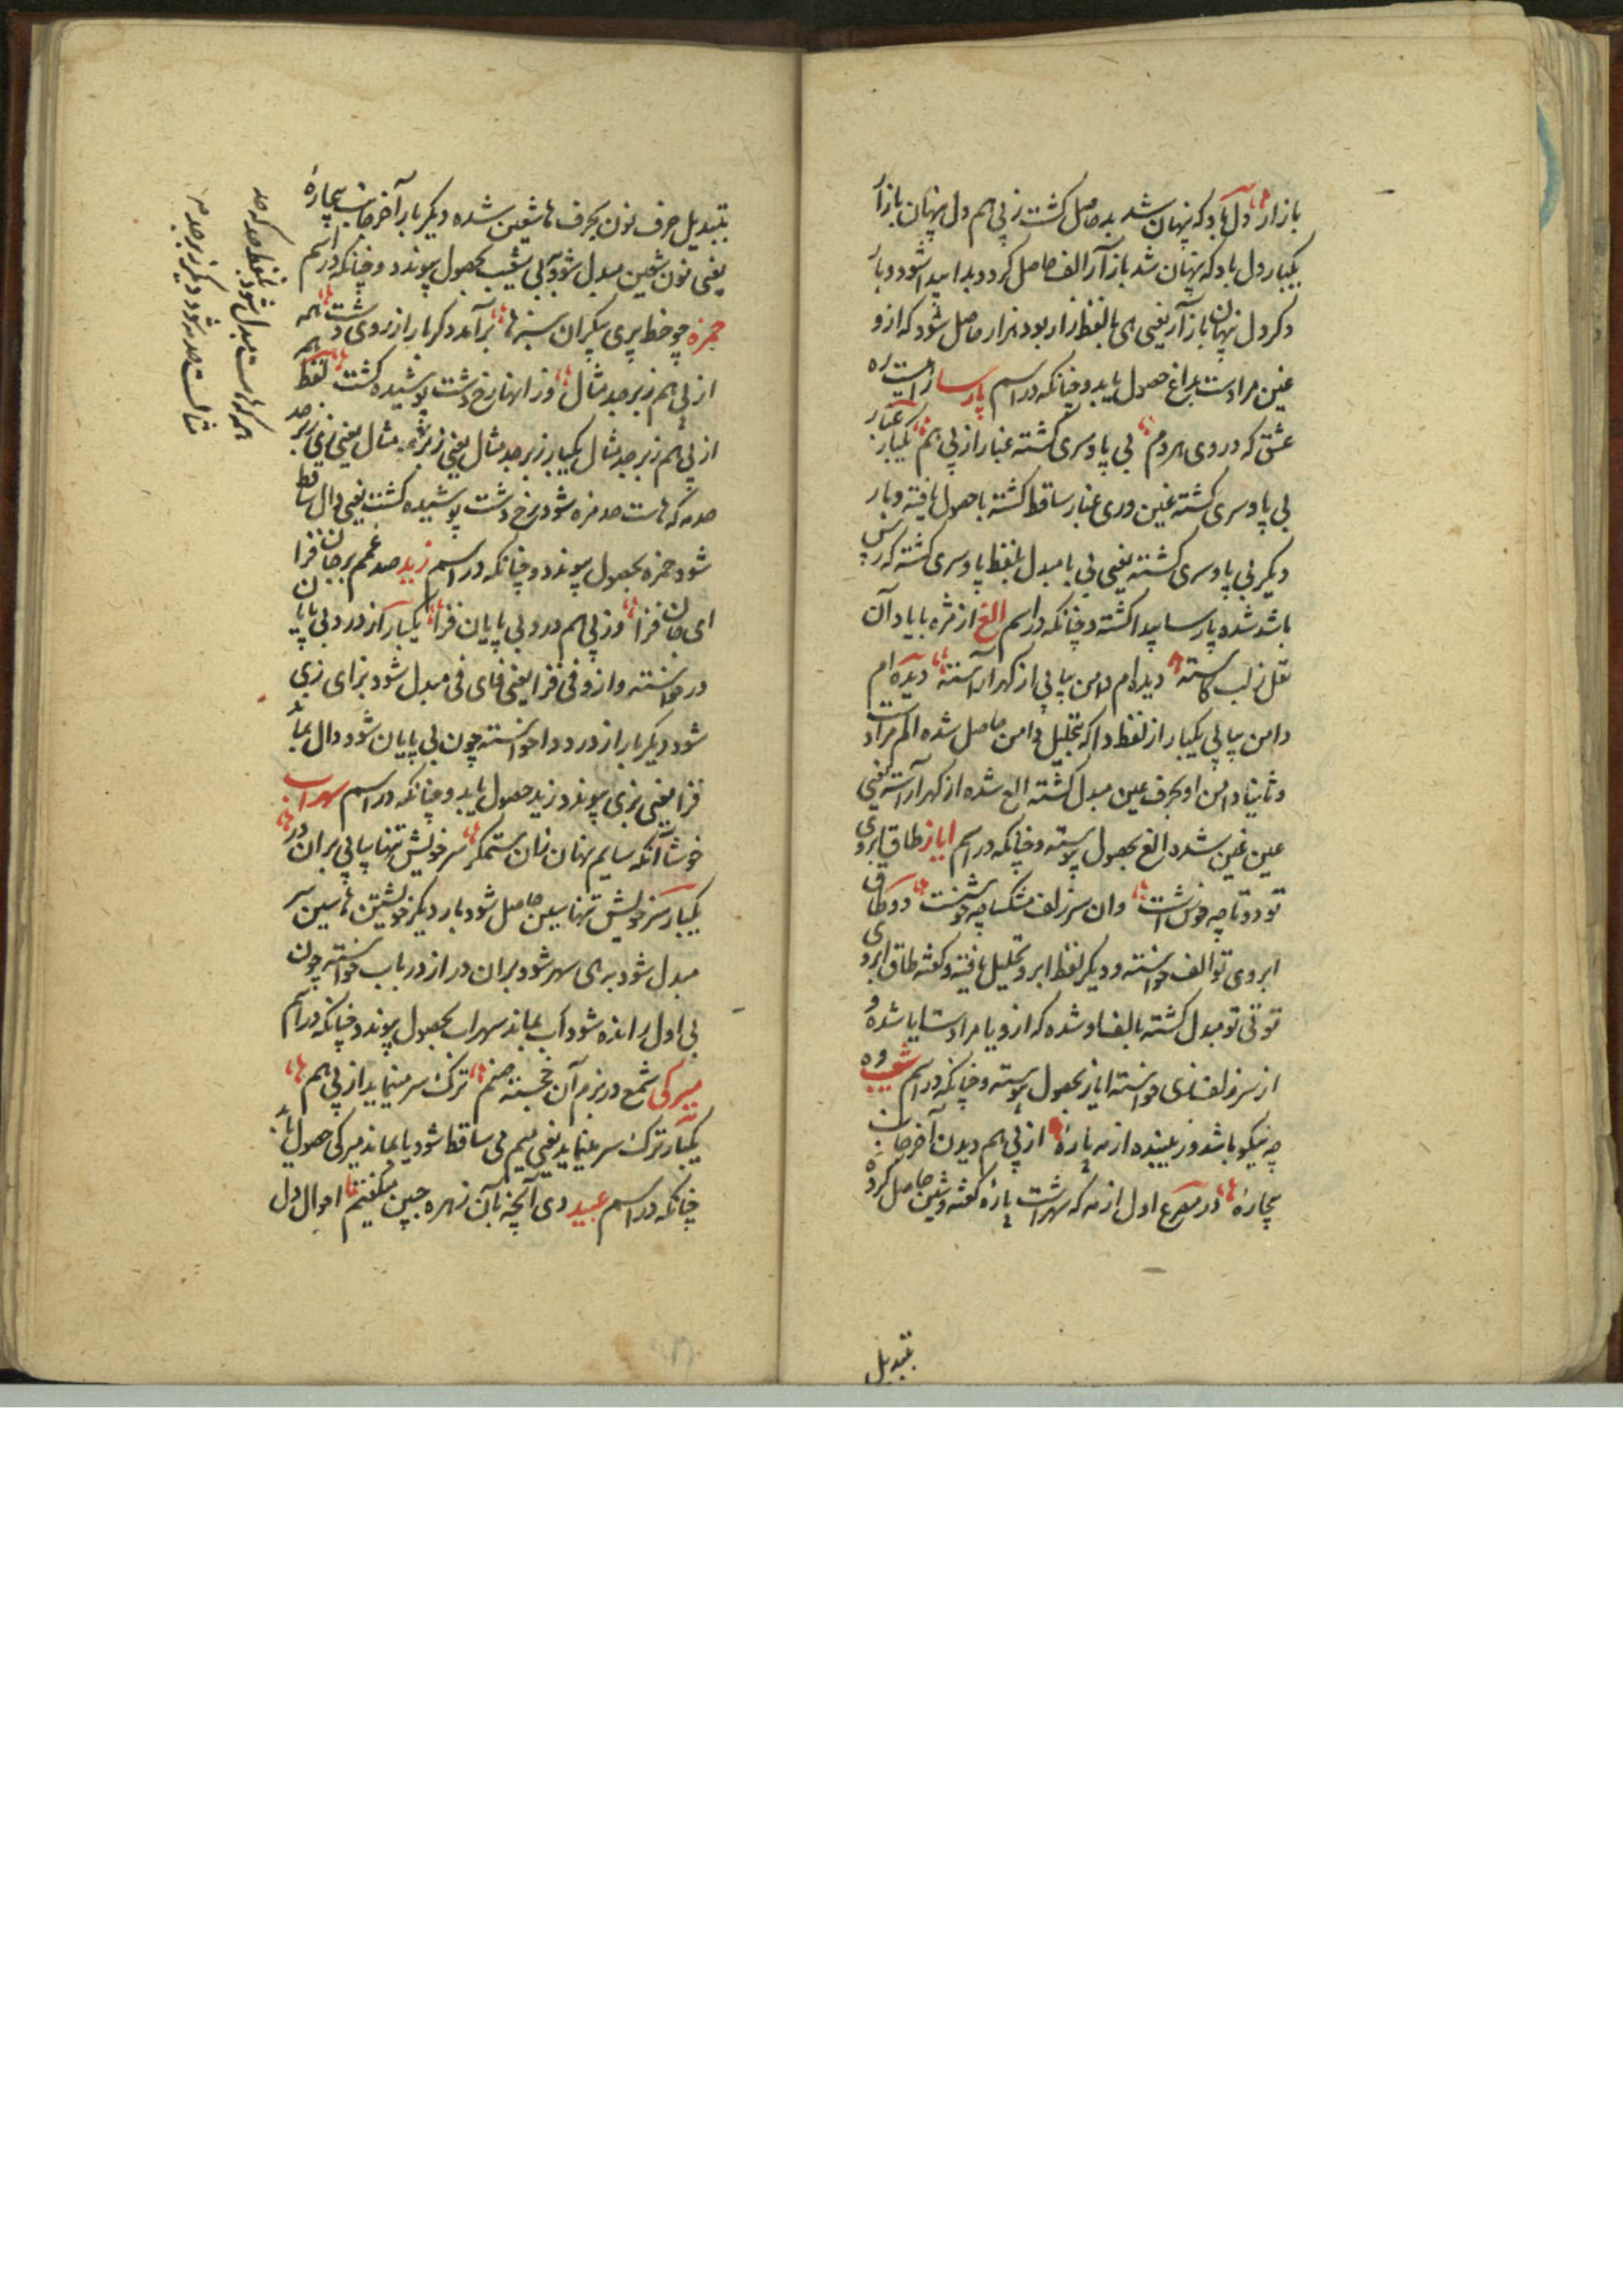 بازار دل باد که پنهان شد بد حاصل کشت ز پی هم دل پنهان بازار
یکبار دل باد که پنهان شد باز آر الف حاصل کردد بدا پیدا شود و بار
دکر دل پنهان باز آر یعنی ای با لفظ زار بود هزار حاصل شود که ازو
غین مرادست بداغ حصول یابد و چنانکه در اسم پارسا راهیست ره
عشق که در وی هر دم بی پا و سری کشته غبار از پی هم یکبار غبار
بی پا و سری کشته غین و ری غبار ساقط کشته با حصول یافته و بار
دیکر بی پا و سری کشته یعنی بی با مبدل بلفظ پا و سری کشته که رس
باشد شده پارسا پیدا کشته و چنانکه در اسم الغ از مژه با یاد آن
لعل ز لب کاسته دیده ام دامن بیاپی از کهر آراسته دیده ام
دامن بیاپی یکبار از لفظ دا که بتحلیل دامن حاصل شده الم مرادست
و ثانیا دامن او بحرف عین مبدل کشته الع شده از کهر آراسته یعنی
عین غین شده الغ بحصول پیوسته و چنانکه در اسم ایاز طاق ابروی
تو دوتا چه خوش است وان سر زلف مشکسا چه خوشست دو طاق
ابروی تو الف خواسته و دیکر لفظ ابرو تحلیل یافته و کفته طاق ابروی
تو تی تو مبدل کشته بالف او شده که ازو یا مرادست ایا شده و
از سر زلف زی خواسته ایاز بحصول پیوسته و چنانکه در اسم شعیب وه
چه نیکو باشد ور بیننده از مه پاره از پی هم دیدن آخر جانب
بیچاره در مصرع اول از مه که شهر است پاره کفته و شین حاصل کرده
تبدیل
بتبدیل حرف نون بحرف ها شین شده دیکر بار آخر جانب بیچاره
یعنی نون شین مبدل شود بی شعیب بحصول پیوندد و چنانکه در اسم
حمزه چو خط پری پیکران سبزها برآمد دکر بار از روی دشت همه
از پی هم زبرجد مثال وز انها رخ دشت پوشیده کشت لفظ همه
از پی هم زبرجد مثال یکبار زبرجد مثال یعنی زبر مثال یعنی زی زبرجد
صد مه که هاست صد مزه شود رخ دشت پوشیده کشت یعنی دال ساقط
شود حمزه بحصول پیوندد و چنانکه در اسم زید صد غمم بر جان فزا
ای جان فزا وز پی هم درد بی پایان فزا یکبار از درد بی پایان
در خواسته و ازو فی فزا یعنی فای فی مبدل شود بزای زی
شود دیکر بار از درد دا خواسته چون بی پایان شود دال بماند
فزا یعنی بزی پیوندد زید حصول یابد و چنانکه در اسم سهراب
خوشا آنکه سایم نهان زان ستمکر سر خویش تنها بیاپی بران در
یکبار سر خویش تنها سین حاصل شود بار دیکر خویشتن ها سین سر
مبدل شود بهی سهر شود بران در از در باب خواسته چون
بی اول رانده شود اب بماند سهراب بحصول پیوندد و چنانکه در اسم
میرکی شمع در بزم آن خجسته صنم ترک سر مینماید از پی هم
یکبار ترک سر مینماید یعنی میم می ساقط شود یا بماند میرکی حصول یابد
چنانکه در اسم عبید دی آنچه بآن زهره جبین میکفتم احوال دل